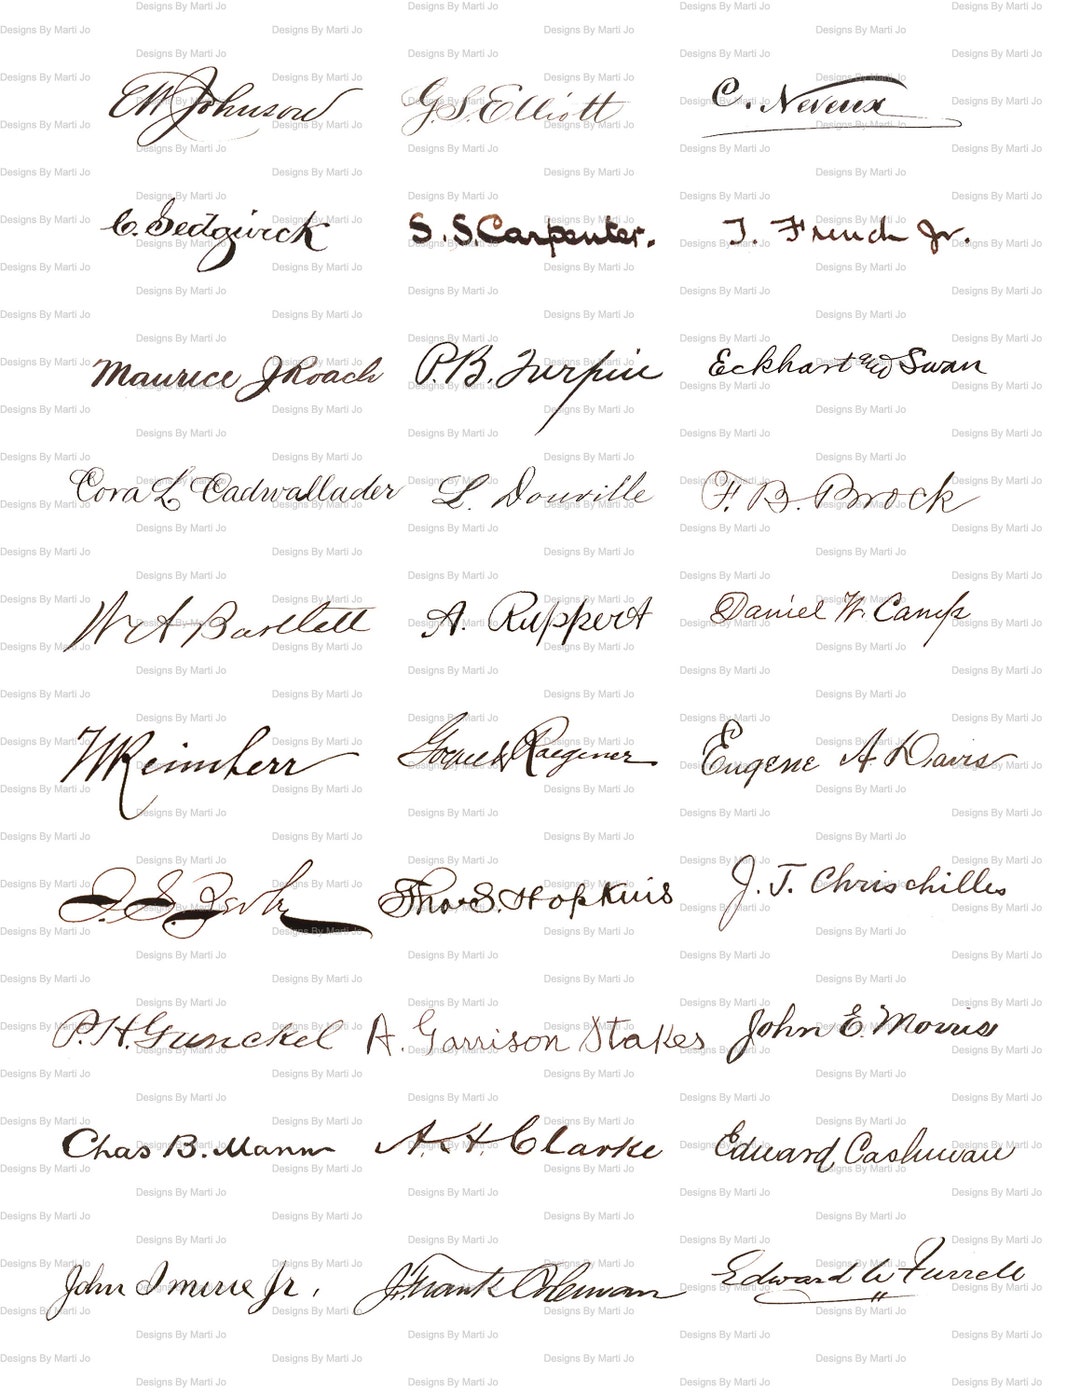 EW Johnson G.S. Elliott C. Neveux
C. Sedgwick S. S. Carpenter. J. French Jr.
Maurice J Roach P. B. Turpin Eckhart and Swan
Cora L Cadwallader L. Douville F. B. Brock
W A Bartlett A. Ruppert Daniel W. Camp
W Reinherr Raegener Eugene A Davis
Thos S. Hopkins J. T. Chrischilles
P. H. Gunckel A. Garrison Stakes John E. Morris
Chas B. Mann A. H. Clarke Edward Cashman
John Imirie Jr. J. Frank Coleman Edward W Furrell
Designs By Marti Jo